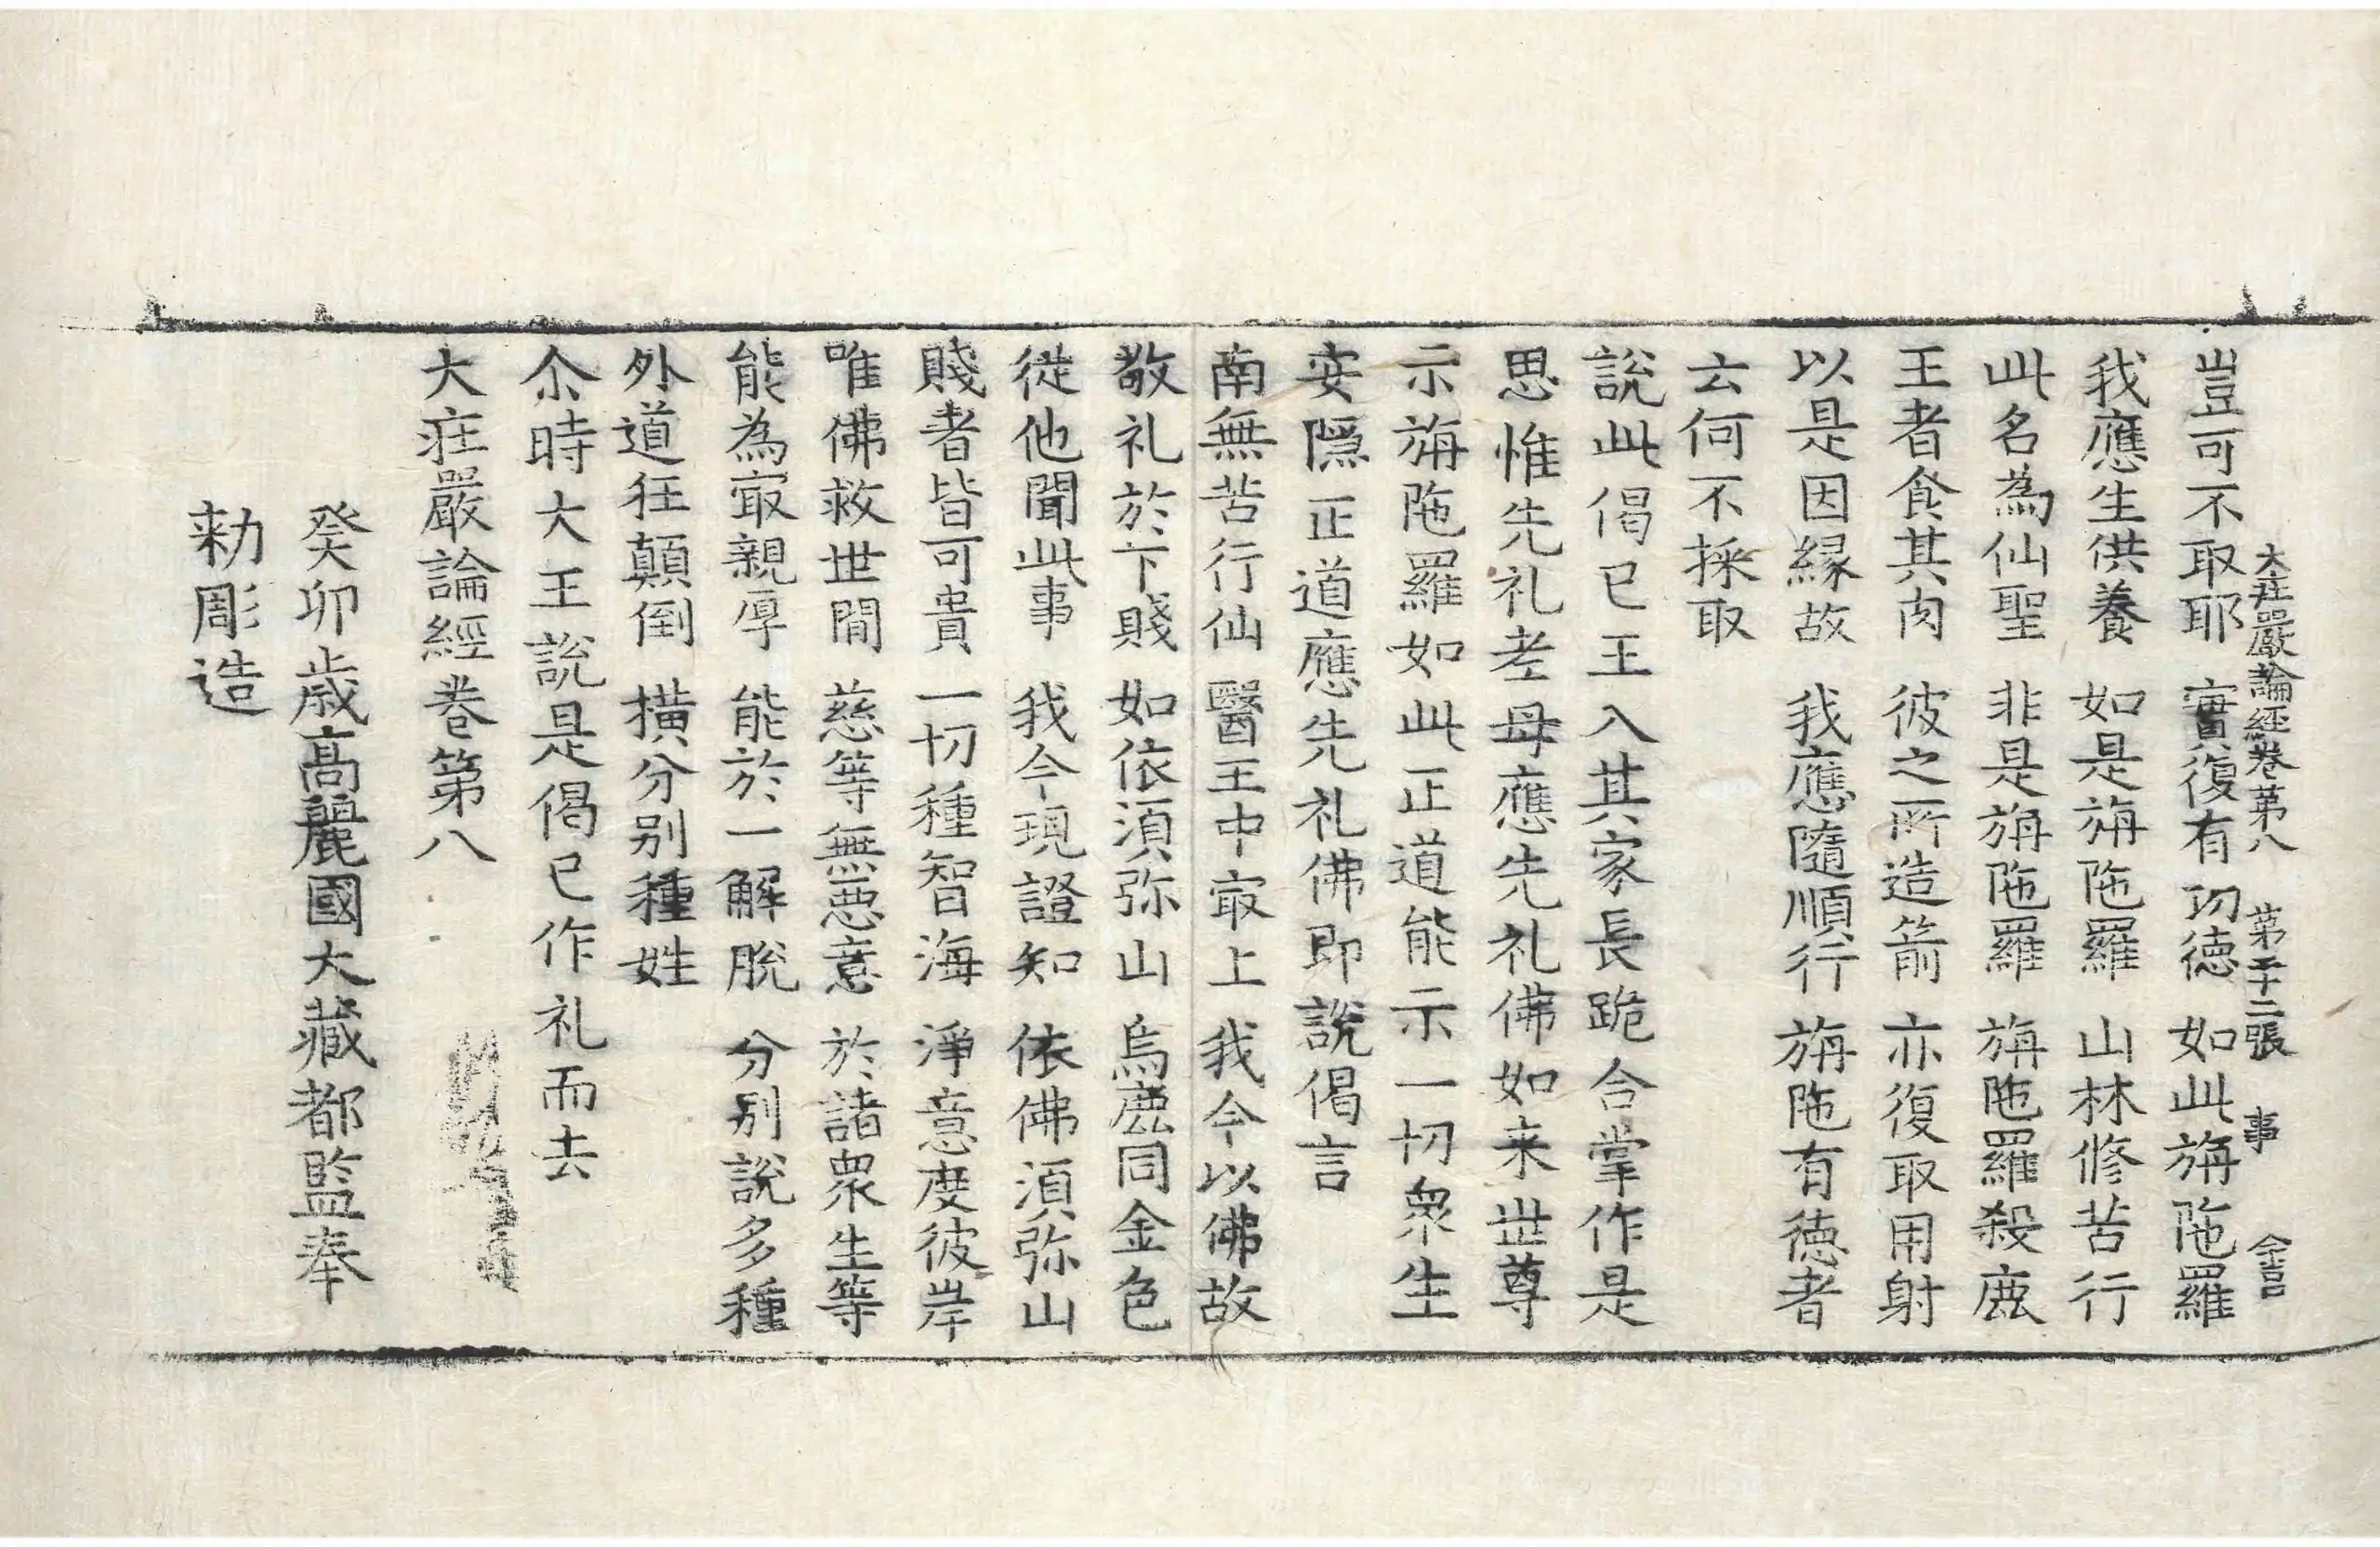 大莊嚴論經卷第八 第二十二張 事 金言
豈可不取耶 實復有功德 如此旃陁羅
我應生供養 如是旃陁羅 山林修苦行
此名為仙聖 非是旃陁羅 旃陁羅殺鹿
王者食其肉 彼之所造箭 亦復取用射
以是因緣故 我應隨順行 旃陁有德者
云何不採取
說此偈已王入其家長跪合掌作是
思惟先礼孝母應先礼佛如来世尊
示旃陁羅如此正道能示一切衆生
安隱正道應先礼佛即說偈言
南無苦行仙 醫王中㝡上 我今以佛故
敬礼於下賤 如依湏弥山 烏鹿同金色
從他聞此事 我今現證知 依佛湏弥山
賤者皆可貴 一切種智海 淨意度彼岸
唯佛救世間 慈等無惡意 於諸衆生等
能為㝡親厚 能於一解脫 分别說多種
外道狂顛倒 橫分别種姓
尒時大王說是偈已作礼而去
大莊嚴論經卷第八
癸卯歲高麗國大藏都監奉
勑彫造